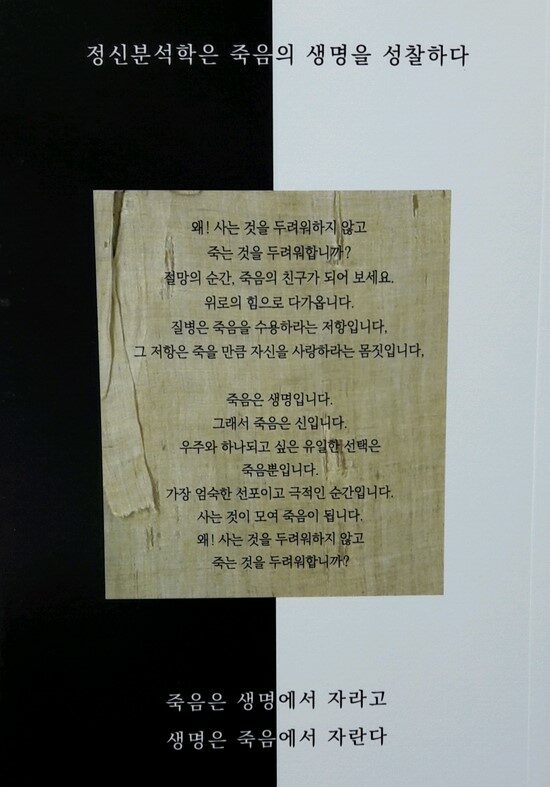 정신분석학은 죽음의 생명을 성찰하다
왜! 사는 것을 두려워하지 않고
죽는 것을 두려워합니까?
절망의 순간, 죽음의 친구가 되어 보세요.
위로의 힘으로 다가옵니다.
질병은 죽음을 수용하라는 저항입니다,
그 저항은 죽을 만큼 자신을 사랑하라는 몸짓입니다,
죽음은 생명입니다.
그래서 죽음은 신입니다.
우주와 하나되고 싶은 유일한 선택은
죽음뿐입니다.
가장 엄숙한 선포이고 극적인 순간입니다.
사는 것이 모여 죽음이 됩니다.
왜! 사는 것을 두려워하지 않고
죽는 것을 두려워합니까?
죽음은 생명에서 자라고
생명은 죽음에서 자란다